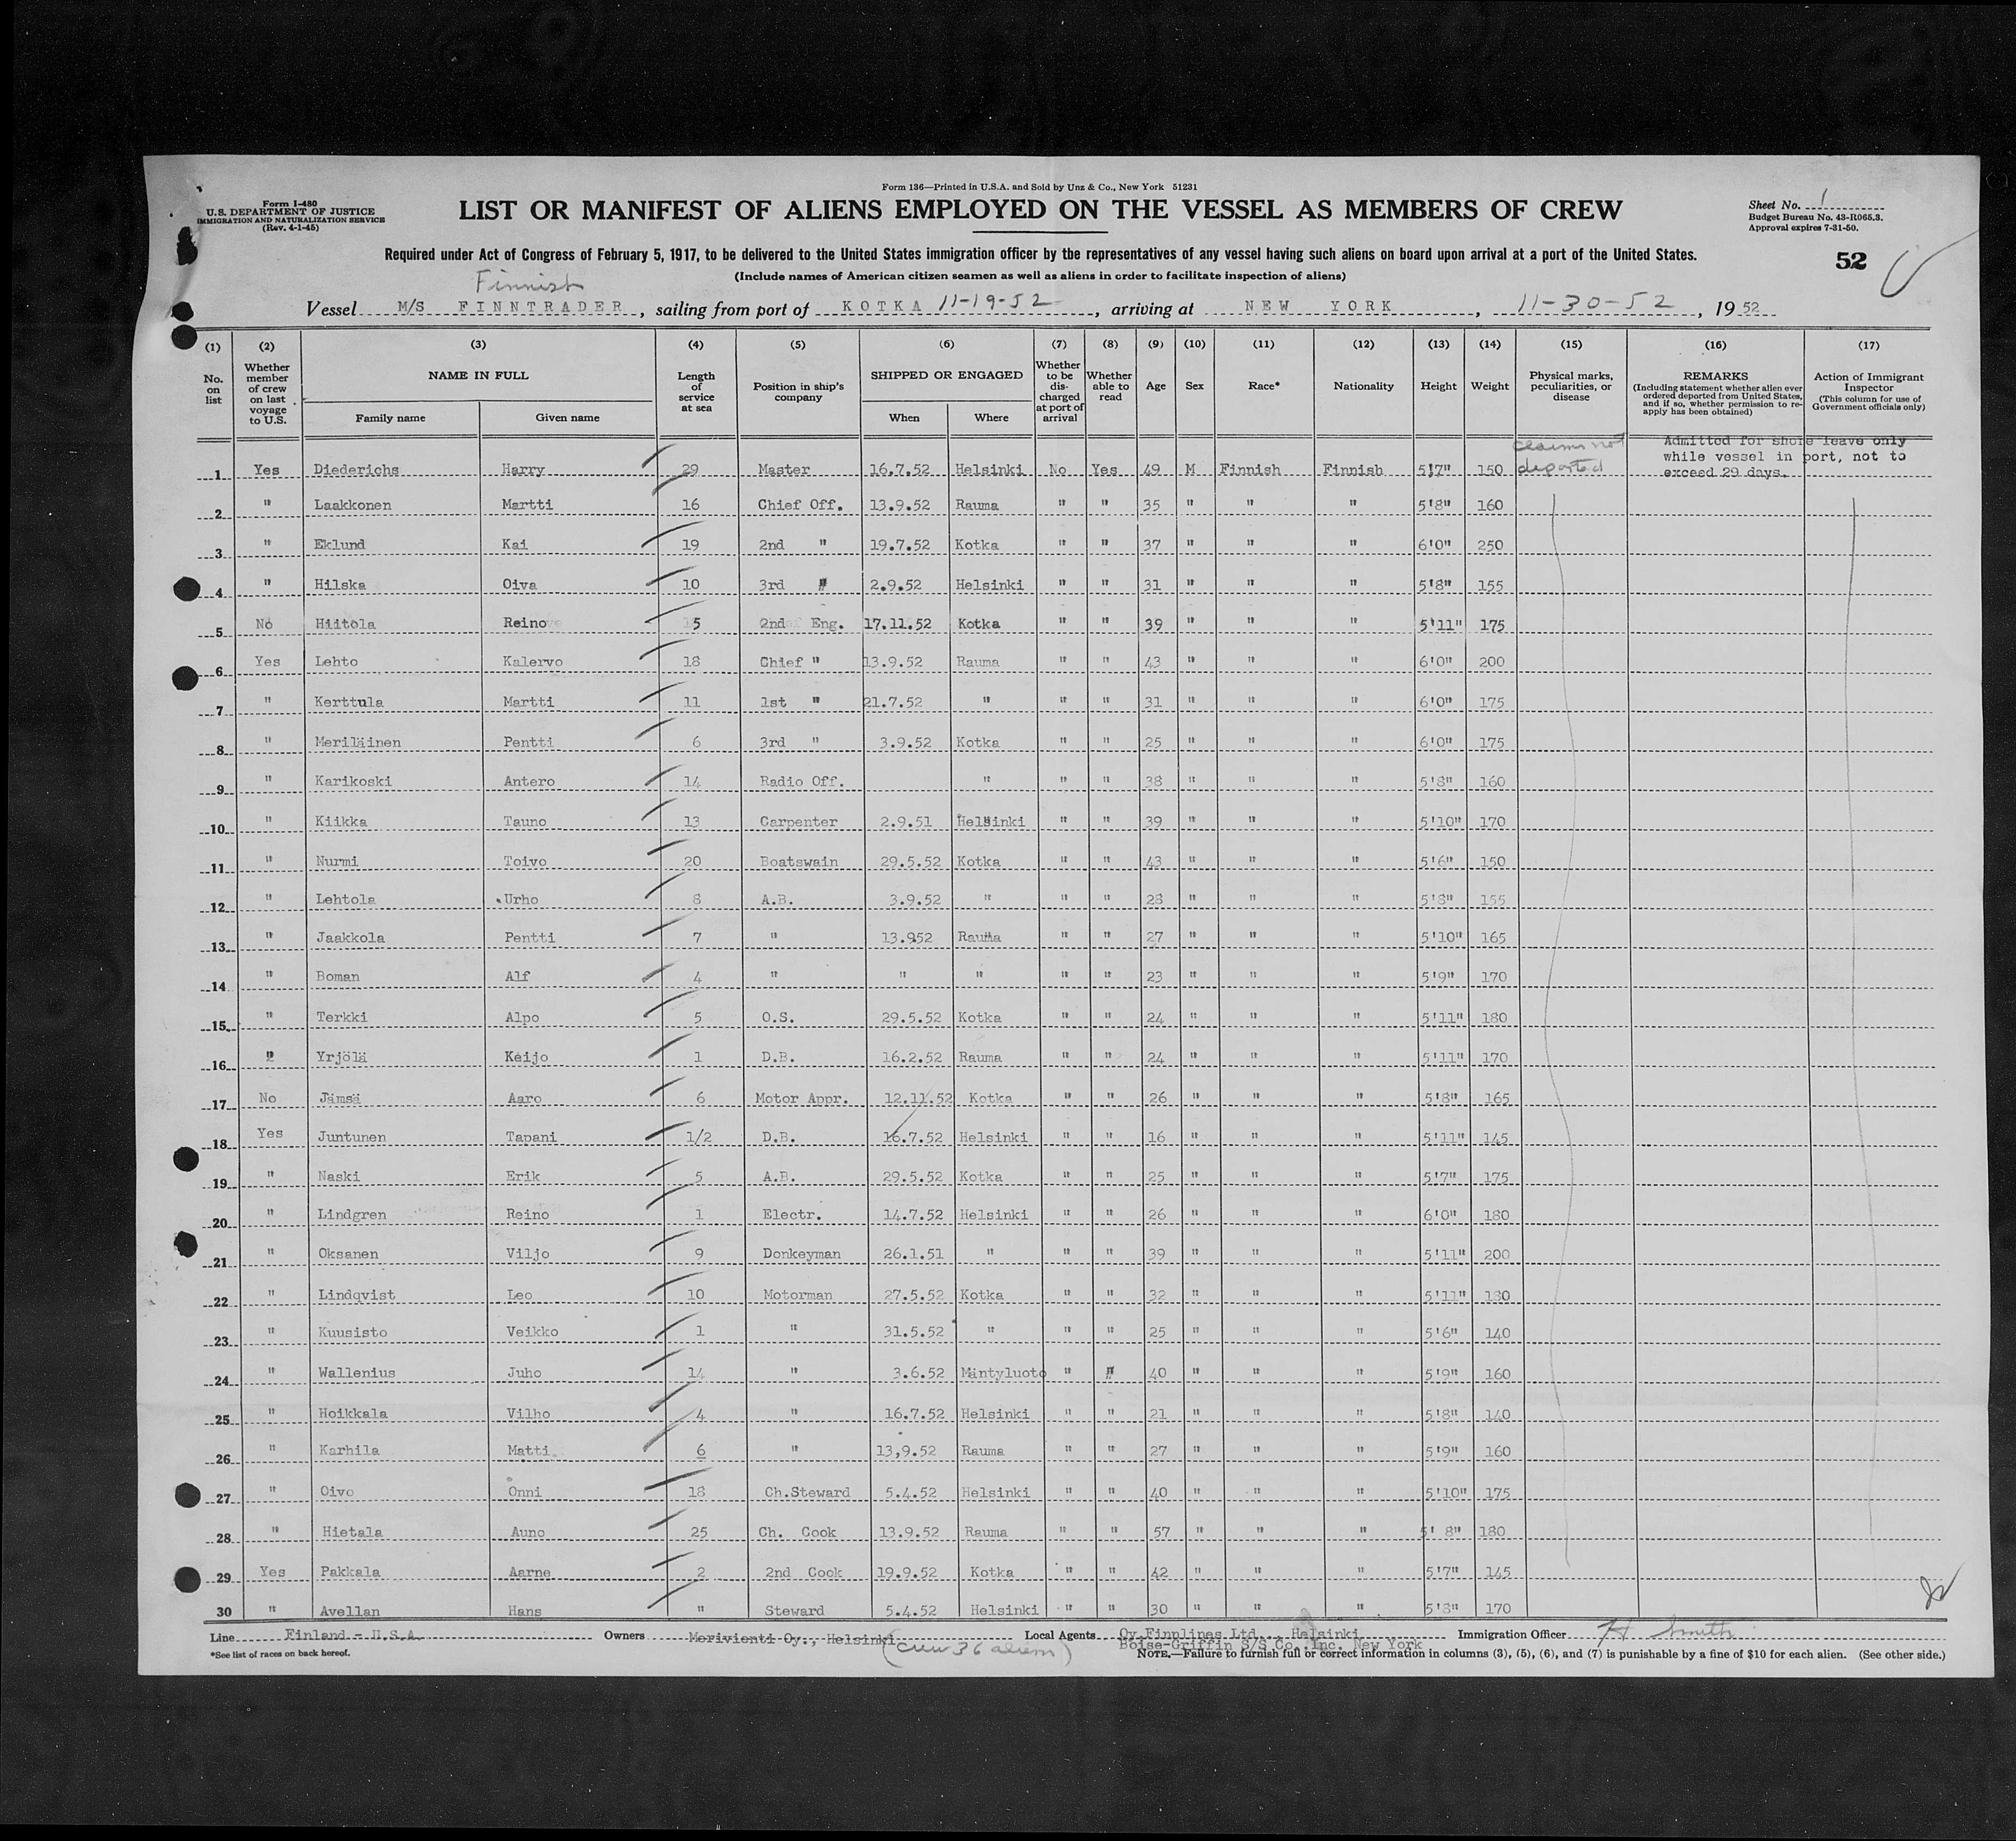 Form 136—Printed in U.S.A. and Sold by Unz & Co., New York 51231
Form I-480
U.S. DEPARTMENT OF JUSTICE
IMMIGRATION AND NATURALIZATION SERVICE
(Rev. 4-1-45)
LIST OR MANIFEST OF ALIENS EMPLOYED ON THE VESSEL AS MEMBERS OF CREW
Sheet No. 1
Budget Bureau No. 43-R065.3.
Approval expires 7-31-50.
Required under Act of Congress of February 5, 1917, to be delivered to the United States immigration officer by the representatives of any vessel having such aliens on board upon arrival at a port of the United States.
(Include names of American citizen seamen as well as aliens in order to facilitate inspection of aliens)
52
Finnish
Vessel M/S FINNTRADER, sailing from port of KOTKA 11-19-52, arriving at NEW YORK, 11-30-52, 19 52
(1) (2) (3) (4) (5) (6) (7) (8) (9) (10) (11) (12) (13) (14) (15) (16) (17)
No. on list
Whether member of crew on last voyage to U.S.
NAME IN FULL
Family name
Given name
Length of service at sea
Position in ship's company
SHIPPED OR ENGAGED
When
Where
Whether to be discharged at port of arrival
Whether able to read
Age
Sex
Race*
Nationality
Height
Weight
Physical marks, peculiarities, or disease
REMARKS
(Including statement whether alien ever ordered deported from United States, and if so, whether permission to reapply has been obtained)
Action of Immigrant Inspector
(This column for use of Government officials only)
claims not deported
Admitted for shore leave only
while vessel in port, not to
exceed 29 days.
1 Yes Diederichs Harry 29 Master 16.7.52 Helsinki No Yes 49 M Finnish Finnish 5'7" 150
2 " Laakkonen Martti 16 Chief Off. 13.9.52 Rauma " " 35 " " " 5'8" 160
3 " Eklund Kai 19 2nd " 19.7.52 Kotka " " 37 " " " 6'0" 250
4 " Hilska Oiva 10 3rd " 2.9.52 Helsinki " " 31 " " " 5'8" 155
5 No Hiitola Reino 5 2nd Eng. 17.11.52 Kotka " " 39 " " " 5'11" 175
6 Yes Lehto Kalervo 18 Chief " 13.9.52 Rauma " " 43 " " " 6'0" 200
7 " Kerttula Martti 11 1st " 21.7.52 " " " 31 " " " 6'0" 175
8 " Meriläinen Pentti 6 3rd " 3.9.52 Kotka " " 25 " " " 6'0" 175
9 " Karikoski Antero 14 Radio Off. " " " 38 " " " 5'8" 160
10 " Kiikka Tauno 13 Carpenter 2.9.51 Helsinki " " 39 " " " 5'10" 170
11 " Nurmi Toivo 20 Boatswain 29.5.52 Kotka " " 43 " " " 5'6" 150
12 " Lehtola Urho 8 A.B. 3.9.52 " " " 28 " " " 5'8" 155
13 " Jaakkola Pentti 7 " 13.952 Rauma " " 27 " " " 5'10" 165
14 " Boman Alf 4 " " " " " 23 " " " 5'9" 170
15 " Terkki Alpo 5 O.S. 29.5.52 Kotka " " 24 " " " 5'11" 180
16 " Yrjölä Keijo 1 D.B. 16.2.52 Rauma " " 24 " " " 5'11" 170
17 No Jämsä Aaro 6 Motor Appr. 12.11.52 Kotka " " 26 " " " 5'8" 165
18 Yes Juntunen Tapani 1/2 D.B. 16.7.52 Helsinki " " 16 " " " 5'11" 145
19 " Naski Erik 5 A.B. 29.5.52 Kotka " " 25 " " " 5'7" 175
20 " Lindgren Reino 1 Electr. 14.7.52 Helsinki " " 26 " " " 6'0" 180
21 " Oksanen Viljo 9 Donkeyman 26.1.51 " " " 39 " " " 5'11" 200
22 " Lindqvist Leo 10 Motorman 27.5.52 Kotka " " 32 " " " 5'11" 180
23 " Kuusisto Veikko 1 " 31.5.52 " " " 25 " " " 5'6" 140
24 " Wallenius Juho 14 " 3.6.52 Mäntyluoto " " 40 " " " 5'9" 160
25 " Hoikkala Vilho 4 " 16.7.52 Helsinki " " 21 " " " 5'8" 140
26 " Karhila Matti 6 " 13,9.52 Rauma " " 27 " " " 5'9" 160
27 " Oivo Onni 18 Ch.Steward 5.4.52 Helsinki " " 40 " " " 5'10" 175
28 " Hietala Auno 25 Ch. Cook 13.9.52 Rauma " " 57 " " " 5' 8" 180
29 Yes Pakkala Aarne 2 2nd Cook 19.9.52 Kotka " " 42 " " " 5'7" 145
30 " Avellan Hans " Steward 5.4.52 Helsinki " " 30 " " " 5'8" 170
Line Finland - U.S.A. Owners Merivienti Oy., Helsinki Local Agents Oy.Finnlines Ltd., Helsinki Immigration Officer H Smith
Boise-Griffin S/S Co.,Inc. New York
(crew 36 aliens)
*See list of races on back hereof.
NOTE.—Failure to furnish full or correct information in columns (3), (5), (6), and (7) is punishable by a fine of $10 for each alien. (See other side.)